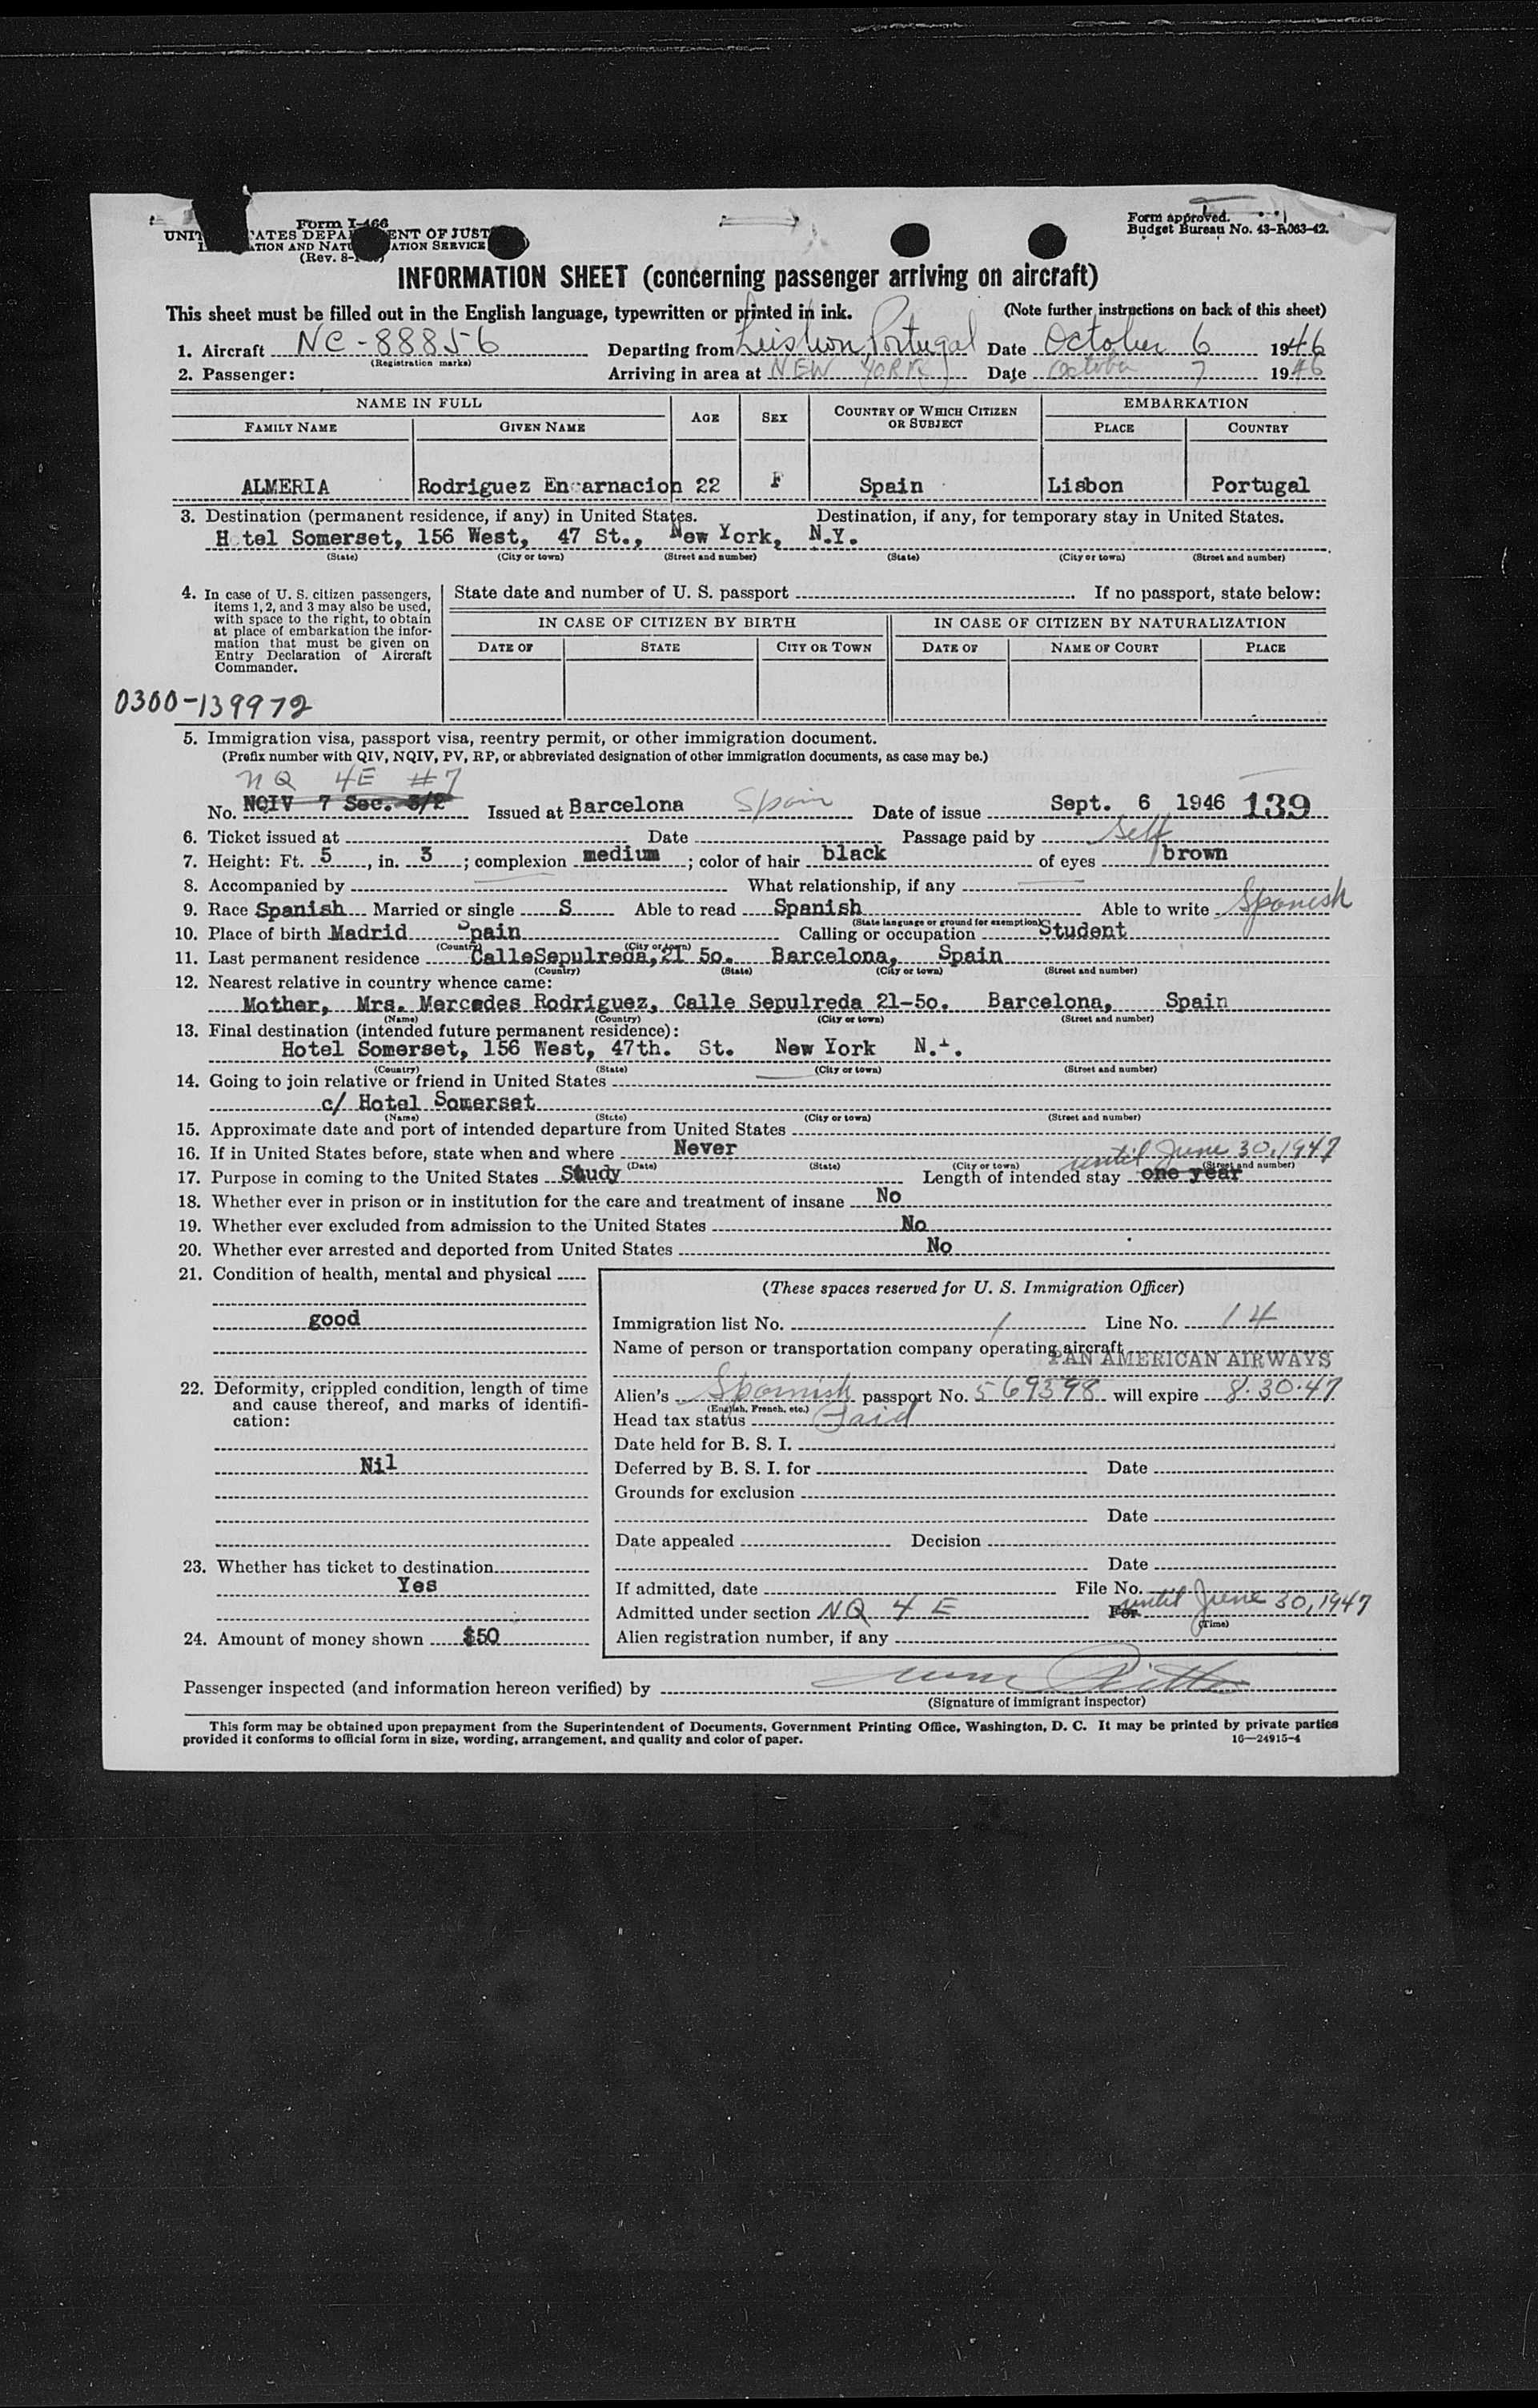 Form I-466
UNIT ATES DEPA ENT OF JUST
ATION AND NATU ATION SERVICE
(Rev. 8-
Form approved.
Budget Bureau No. 43-R063-42.
INFORMATION SHEET (concerning passenger arriving on aircraft)
This sheet must be filled out in the English language, typewritten or printed in ink. (Note further instructions on back of this sheet)
1. Aircraft NC-88856 Departing from Lisbon Portugal Date October 6 1946
(Registration marks)
2. Passenger: Arriving in area at NEW YORK Date October 7 1946
NAME IN FULL AGE SEX COUNTRY OF WHICH CITIZEN OR SUBJECT EMBARKATION
FAMILY NAME GIVEN NAME PLACE COUNTRY
ALMERIA Rodriguez Encarnacion 22 F Spain Lisbon Portugal
3. Destination (permanent residence, if any) in United States. Destination, if any, for temporary stay in United States.
Hotel Somerset, 156 West, 47 St., New York, N.Y.
(State) (City or town) (Street and number) (State) (City or town) (Street and number)
4. In case of U. S. citizen passengers, items 1, 2, and 3 may also be used, with space to the right, to obtain at place of embarkation the information that must be given on Entry Declaration of Aircraft Commander.
State date and number of U. S. passport If no passport, state below:
IN CASE OF CITIZEN BY BIRTH IN CASE OF CITIZEN BY NATURALIZATION
DATE OF STATE CITY OR TOWN DATE OF NAME OF COURT PLACE
0300-139972
5. Immigration visa, passport visa, reentry permit, or other immigration document.
(Prefix number with QIV, NQIV, PV, RP, or abbreviated designation of other immigration documents, as case may be.)
NQ 4E #7
No. NQIV 7 Sec. 3/2 Issued at Barcelona Spain Date of issue Sept. 6 1946 139
6. Ticket issued at Date Passage paid by Self
7. Height: Ft. 5, in. 3; complexion medium; color of hair black of eyes brown
8. Accompanied by What relationship, if any
9. Race Spanish Married or single S Able to read Spanish Able to write Spanish
(State language or ground for exemption)
10. Place of birth Madrid Spain Calling or occupation Student
(Country) (City or town)
11. Last permanent residence CalleSepulreda, 21 5o. Barcelona, Spain
(Country) (State) (City or town) (Street and number)
12. Nearest relative in country whence came:
Mother, Mrs. Mercedes Rodriguez, Calle Sepulreda 21-5o. Barcelona, Spain
(Name) (Country) (City or town) (Street and number)
13. Final destination (intended future permanent residence):
Hotel Somerset, 156 West, 47th. St. New York N.Y.
(Country) (State) (City or town) (Street and number)
14. Going to join relative or friend in United States
c/ Hotel Somerset
(Name) (State) (City or town) (Street and number)
15. Approximate date and port of intended departure from United States
16. If in United States before, state when and where Never until June 30, 1947
(Date) (State) (City or town) (Street and number)
17. Purpose in coming to the United States Study Length of intended stay one year
18. Whether ever in prison or in institution for the care and treatment of insane No
19. Whether ever excluded from admission to the United States No
20. Whether ever arrested and deported from United States No
21. Condition of health, mental and physical
good
22. Deformity, crippled condition, length of time and cause thereof, and marks of identification:
Nil
23. Whether has ticket to destination
Yes
24. Amount of money shown $50
(These spaces reserved for U. S. Immigration Officer)
Immigration list No. 1 Line No. 14
Name of person or transportation company operating aircraft
PAN AMERICAN AIRWAYS
Alien's Spanish passport No. 569398 will expire 8.30.47
(English, French, etc.)
Head tax status Paid
Date held for B. S. I.
Deferred by B. S. I. for Date
Grounds for exclusion
Date
Date appealed Decision
Date
If admitted, date File No.
Admitted under section NQ 4 E For until June 30, 1947
(Time)
Alien registration number, if any
Passenger inspected (and information hereon verified) by
(Signature of immigrant inspector)
This form may be obtained upon prepayment from the Superintendent of Documents, Government Printing Office, Washington, D. C. It may be printed by private parties
provided it conforms to official form in size, wording, arrangement, and quality and color of paper. 16—24915-4